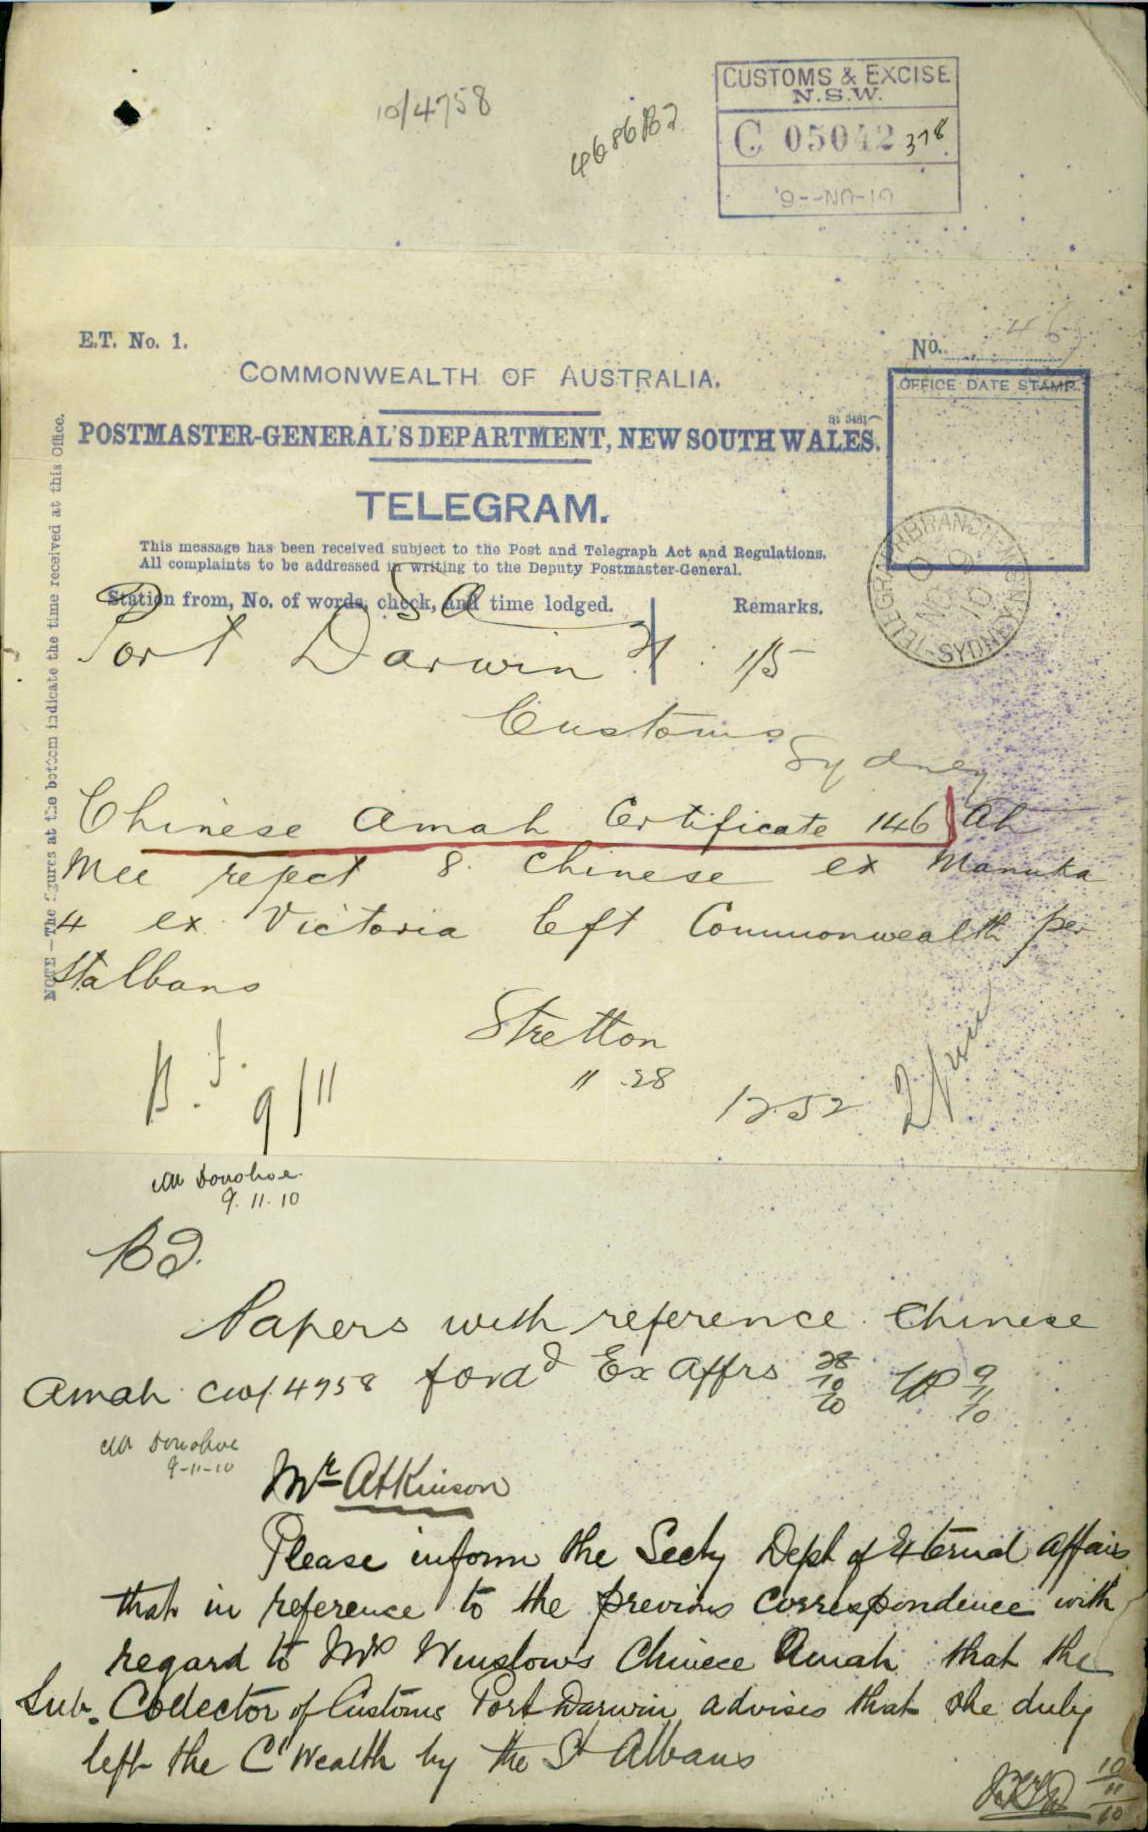 10/4758
4686B2
CUSTOMS & EXCISE
N.S.W.
C 05042 378
9--NO-10
E.T. No. 1.
No. 46
COMMONWEALTH OF AUSTRALIA.
OFFICE DATE STAMP.
POSTMASTER-GENERAL'S DEPARTMENT, NEW SOUTH WALES.
TELEGRAM.
This message has been received subject to the Post and Telegraph Act and Regulations.
All complaints to be addressed in writing to the Deputy Postmaster-General.
Station from, No. of words, check, and time lodged.
Remarks.
TELEGRAPH BRANCH-N.S.W. SYDNEY
9 NO 10
NOTE—The figures at the bottom indicate the time received at this Office.
S A
Port Darwin 1/5
Customs
Sydney
Chinese Amah Certificate 146 Ah
Mee reject 8 Chinese ex Manuka
4 ex Victoria left Commonwealth per
Stalbans
Stretton
11.28
1252
B. J. 9/11
Mr Donohoe
9.11.10
B2.
Papers with reference Chinese
Amah C10/4758 ford Ex Affrs 28/10/10 9/11/10
Mr Donohoe
9-11-10
Mr Atkinson
Please inform the Secty Dept of External Affairs
that in reference to the previous correspondence with
regard to Mrs Winslow's Chinese Amah that the
Sub. Collector of Customs Port Darwin advises that she duly
left the C'Wealth by the St Albans
10/11/10